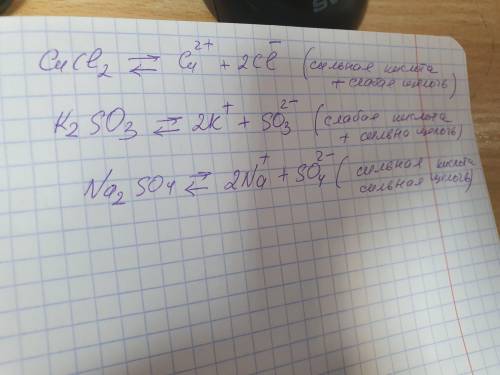 CuCl₂ ⇄ Cu²⁺ + 2Cl⁻ (сильная кислота
+ слабая щелочь)
K₂SO₃ ⇄ 2K⁺ + SO₃²⁻ (слабая кислота
+ сильна щелочь)
Na₂SO₄ ⇄ 2Na⁺ + SO₄²⁻ (сильная кислота
сильная щелочь)